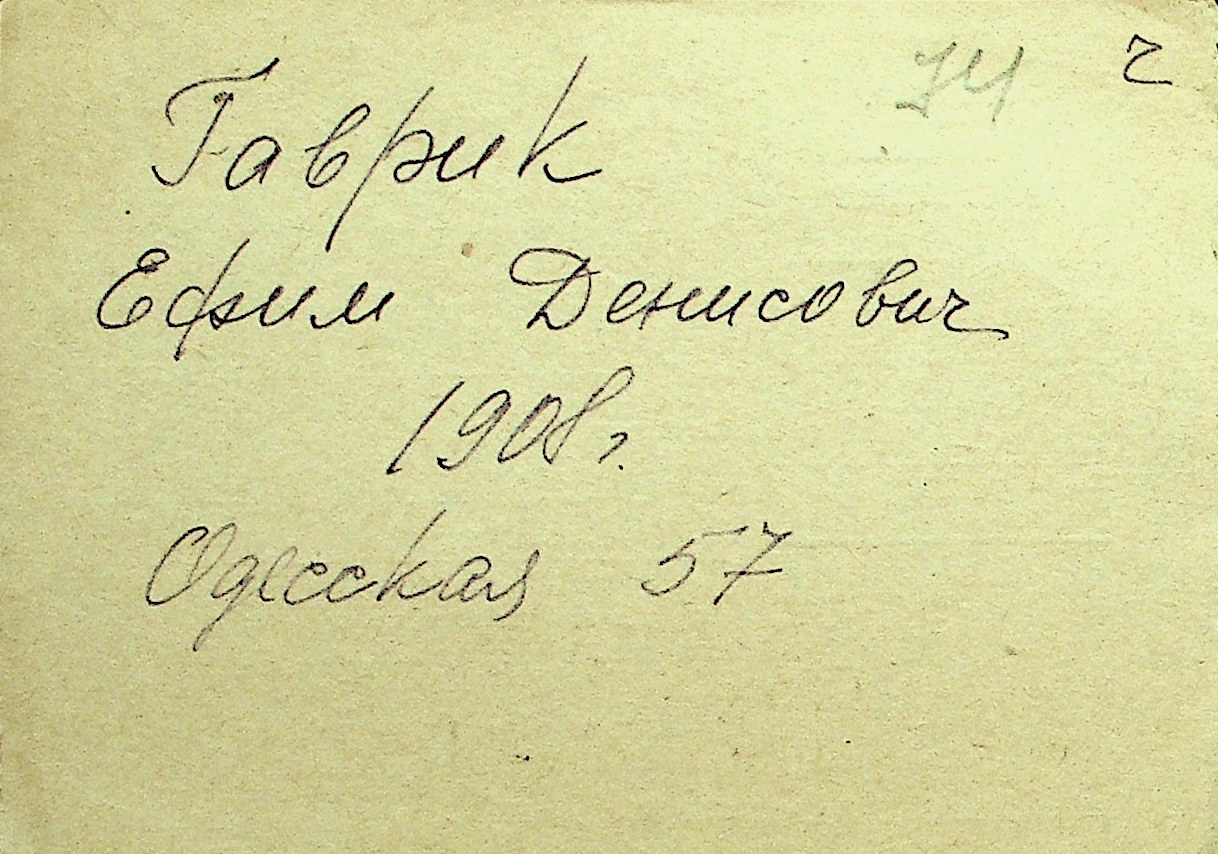 Гаврик
Ефим Денисович
1908 г.
Одесская 57